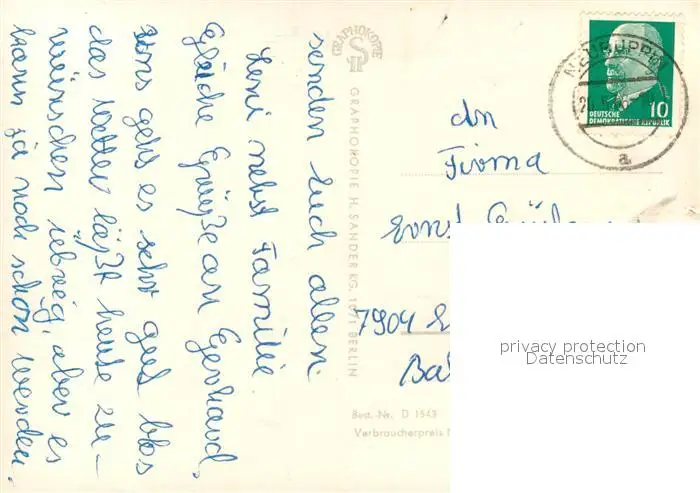 senden Euch allen
Leni nebst Familie
Gleiche Grüße an Gerhard.
uns geht es sehr gut blos
das Wetter läßt heute zu-
wünschen übrig, aber es
kann ja noch schön werden.
GRAPHOKOPIE
GRAPHOKOPIE H. SANDER KG. 1071 BERLIN
NEURUPPIN
a
DEUTSCHE
DEMOKRATISCHE REPUBLIK
10
An
Firma
Ernst
7904
Best.-Nr. D 1543
Verbraucherpreis
privacy protection
Datenschutz